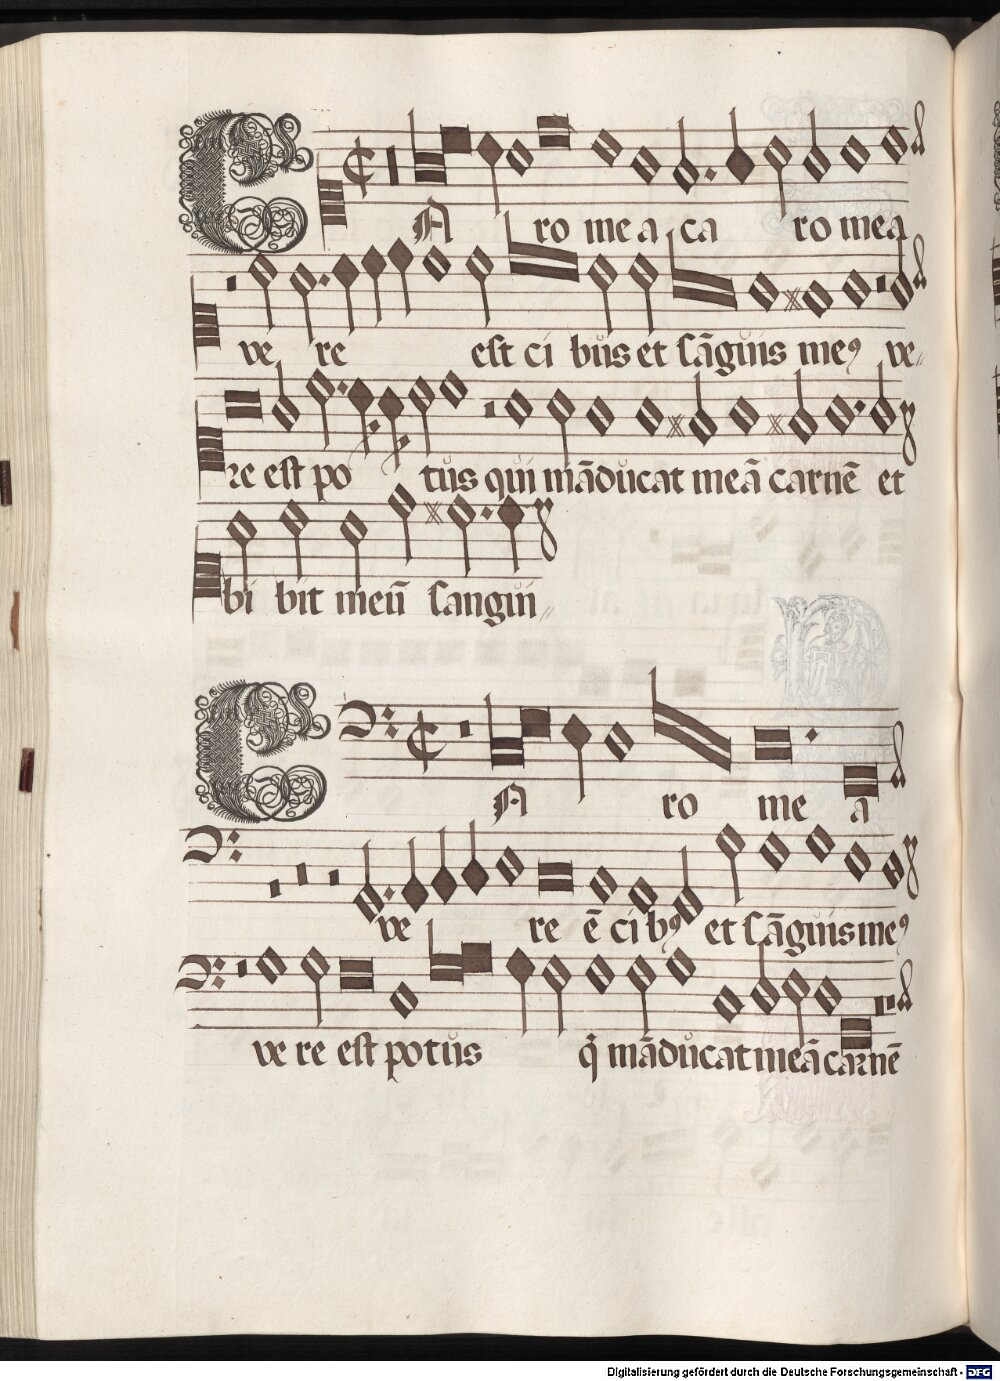 CA ro me a ca ro mea
ve re est ci bus et sāguis meꝰ ve⸗
re est po tus qui māducat meā carnē et
bi bit meū sanguin⸗
CA ro me a
ve re ē ci bꝰ et sāguis meꝰ
ve re est potus q̇ māducat meā carnē
Digitalisierung gefördert durch die Deutsche Forschungsgemeinschaft - DFG